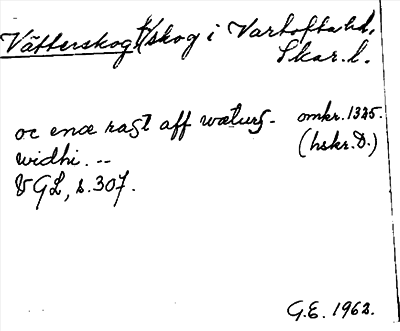 Vätterskog f/skog i Vartofta hd,
Skar. l.
oc enæ rast aff wæturs- omkr. 1325.
widhi. -- (hskr. D.)
VGL, s. 307.
G.E. 1962.